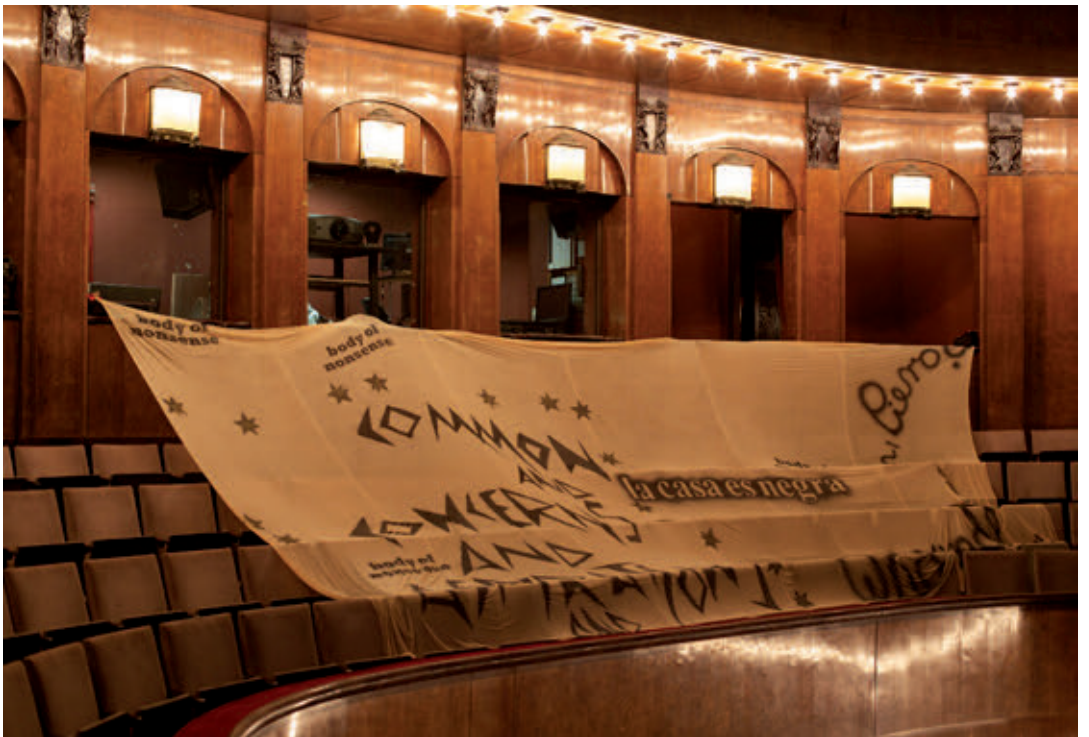 body of
nonsense
body of
nonsense
COMMON
AND
la casa es negra
CONCERNS
AND
body of
nonsense
AND